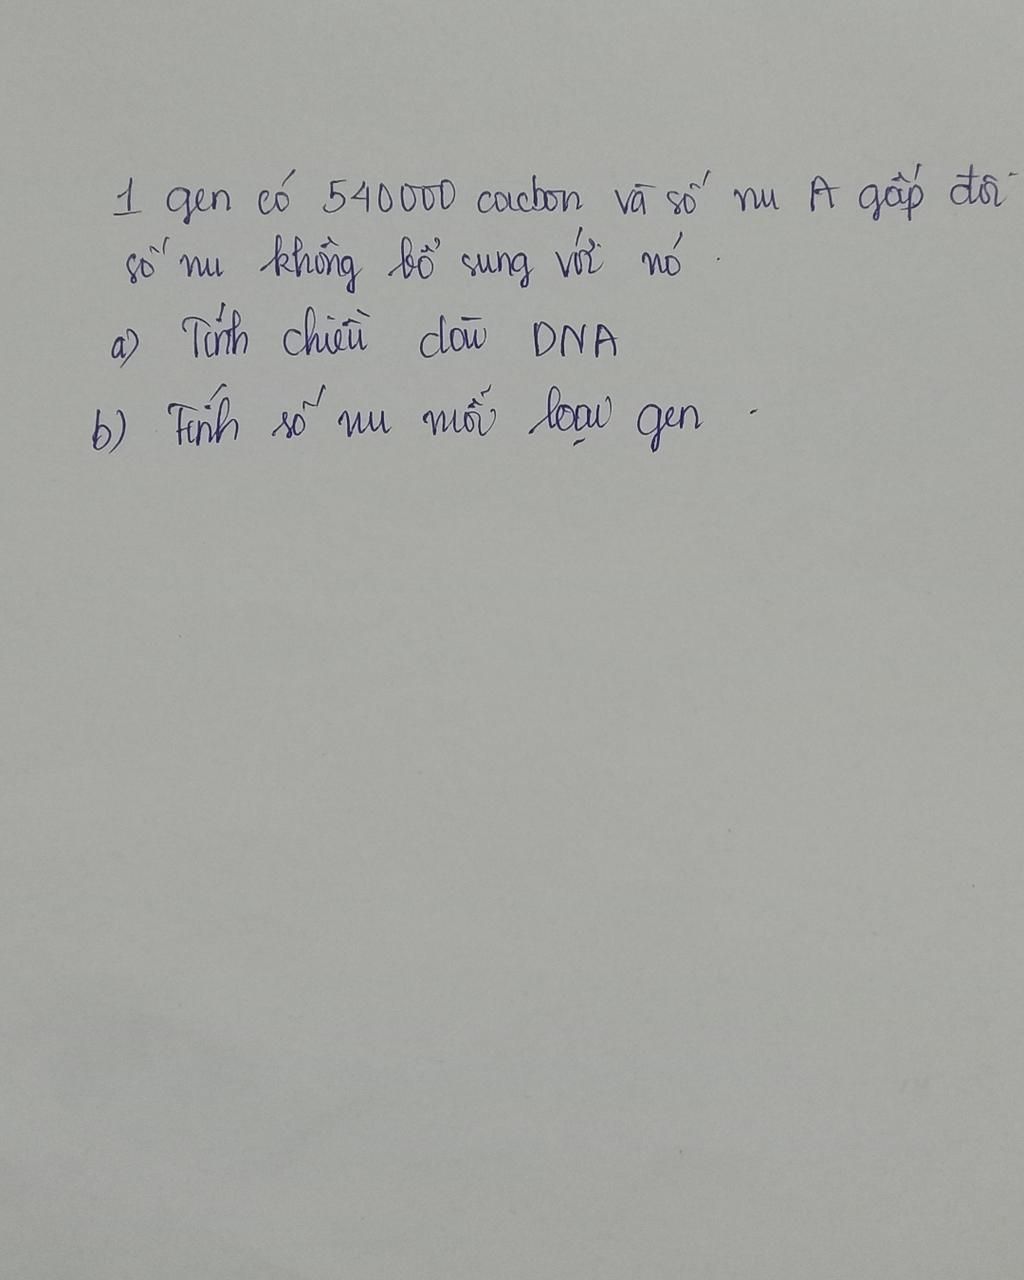 1 gen có 540000 cacbon và số nu A gấp đôi
số nu không bổ sung với nó.
a) Tính chiều dài DNA
b) Tính số nu mỗi loại gen.